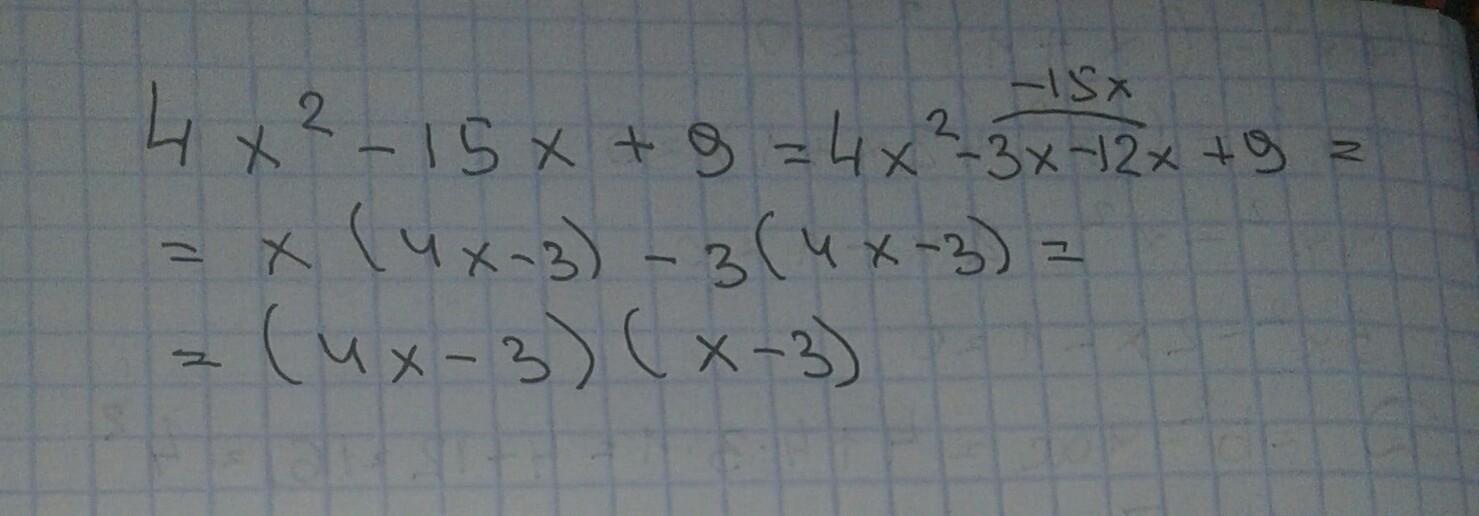 -15x
4x² - 15x + 9 = 4x² - 3x - 12x + 9 =
= x (4x - 3) - 3 (4x - 3) =
= (4x - 3) (x - 3)